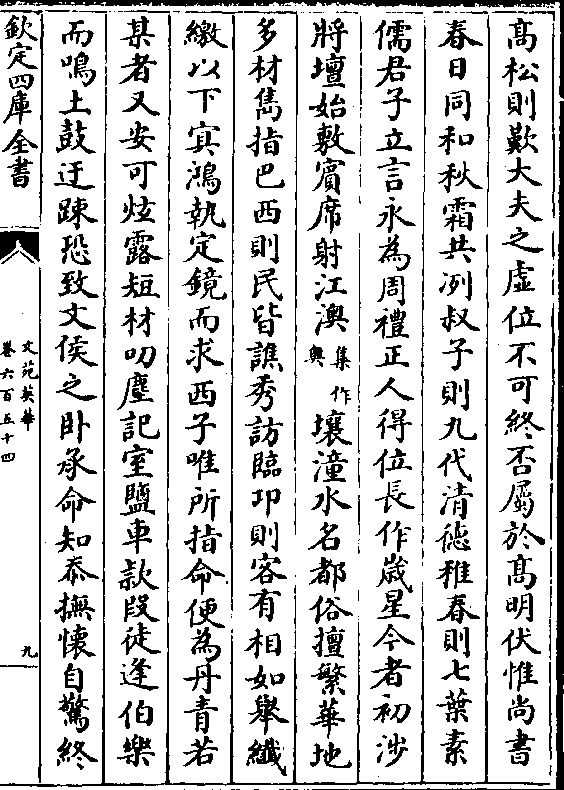 髙松則歎大夫之虚位不可終否屬於髙明伏惟尚書
春日同和秋霜共冽叔子則九代清德稚春則七葉素
儒君子立言永為周禮正人得位長作歲星今者初涉
將壇始敷賓席射江澳集作奧壤潼水名都俗擅繁華地
多材雋指巴西則民皆譙秀訪臨卭則客有相如舉纎
繳以下㝠鴻執定鏡而求西子唯所指命便為丹青若
某者又安可炫露短材叨塵記室鹽車款段徒逢伯樂
而鳴土鼓迂踈恐致文侯之卧承命知忝撫懷自驚終
欽定四庫全書
文苑英華
卷六百五十四
九